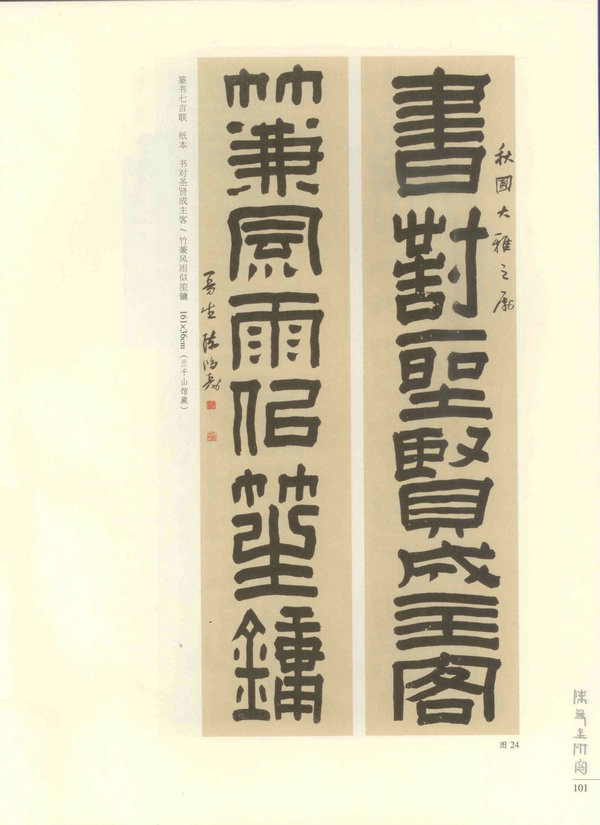 書對聖賢成主客
秋圃大雅之屬
竹兼風雨似笙鏞
曼生陳鴻壽
篆书七言联 纸本 书对圣贤成主客 / 竹兼风雨似笙镛 161×36cm（兰千山馆藏）
图 24
陳曼生研究
101